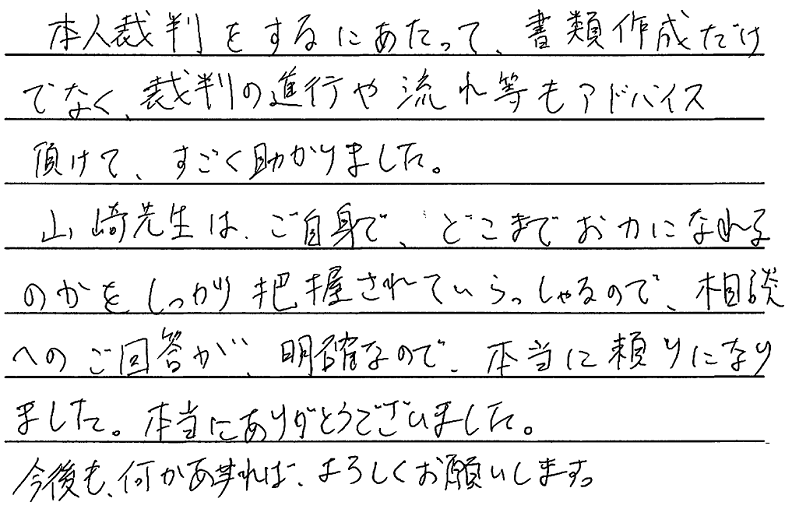 本人裁判をするにあたって、書類作成だけ
でなく、裁判の進行や流れ等もアドバイス
頂けて、すごく助かりました。
山崎先生は、ご自身で、どこまでお力になれる
のかを、しっかり把握されていらっしゃるので、相談
へのご回答が、明確なので、本当に頼りになり
ました。本当にありがとうございました。
今後も、何かあれば、よろしくお願いします。